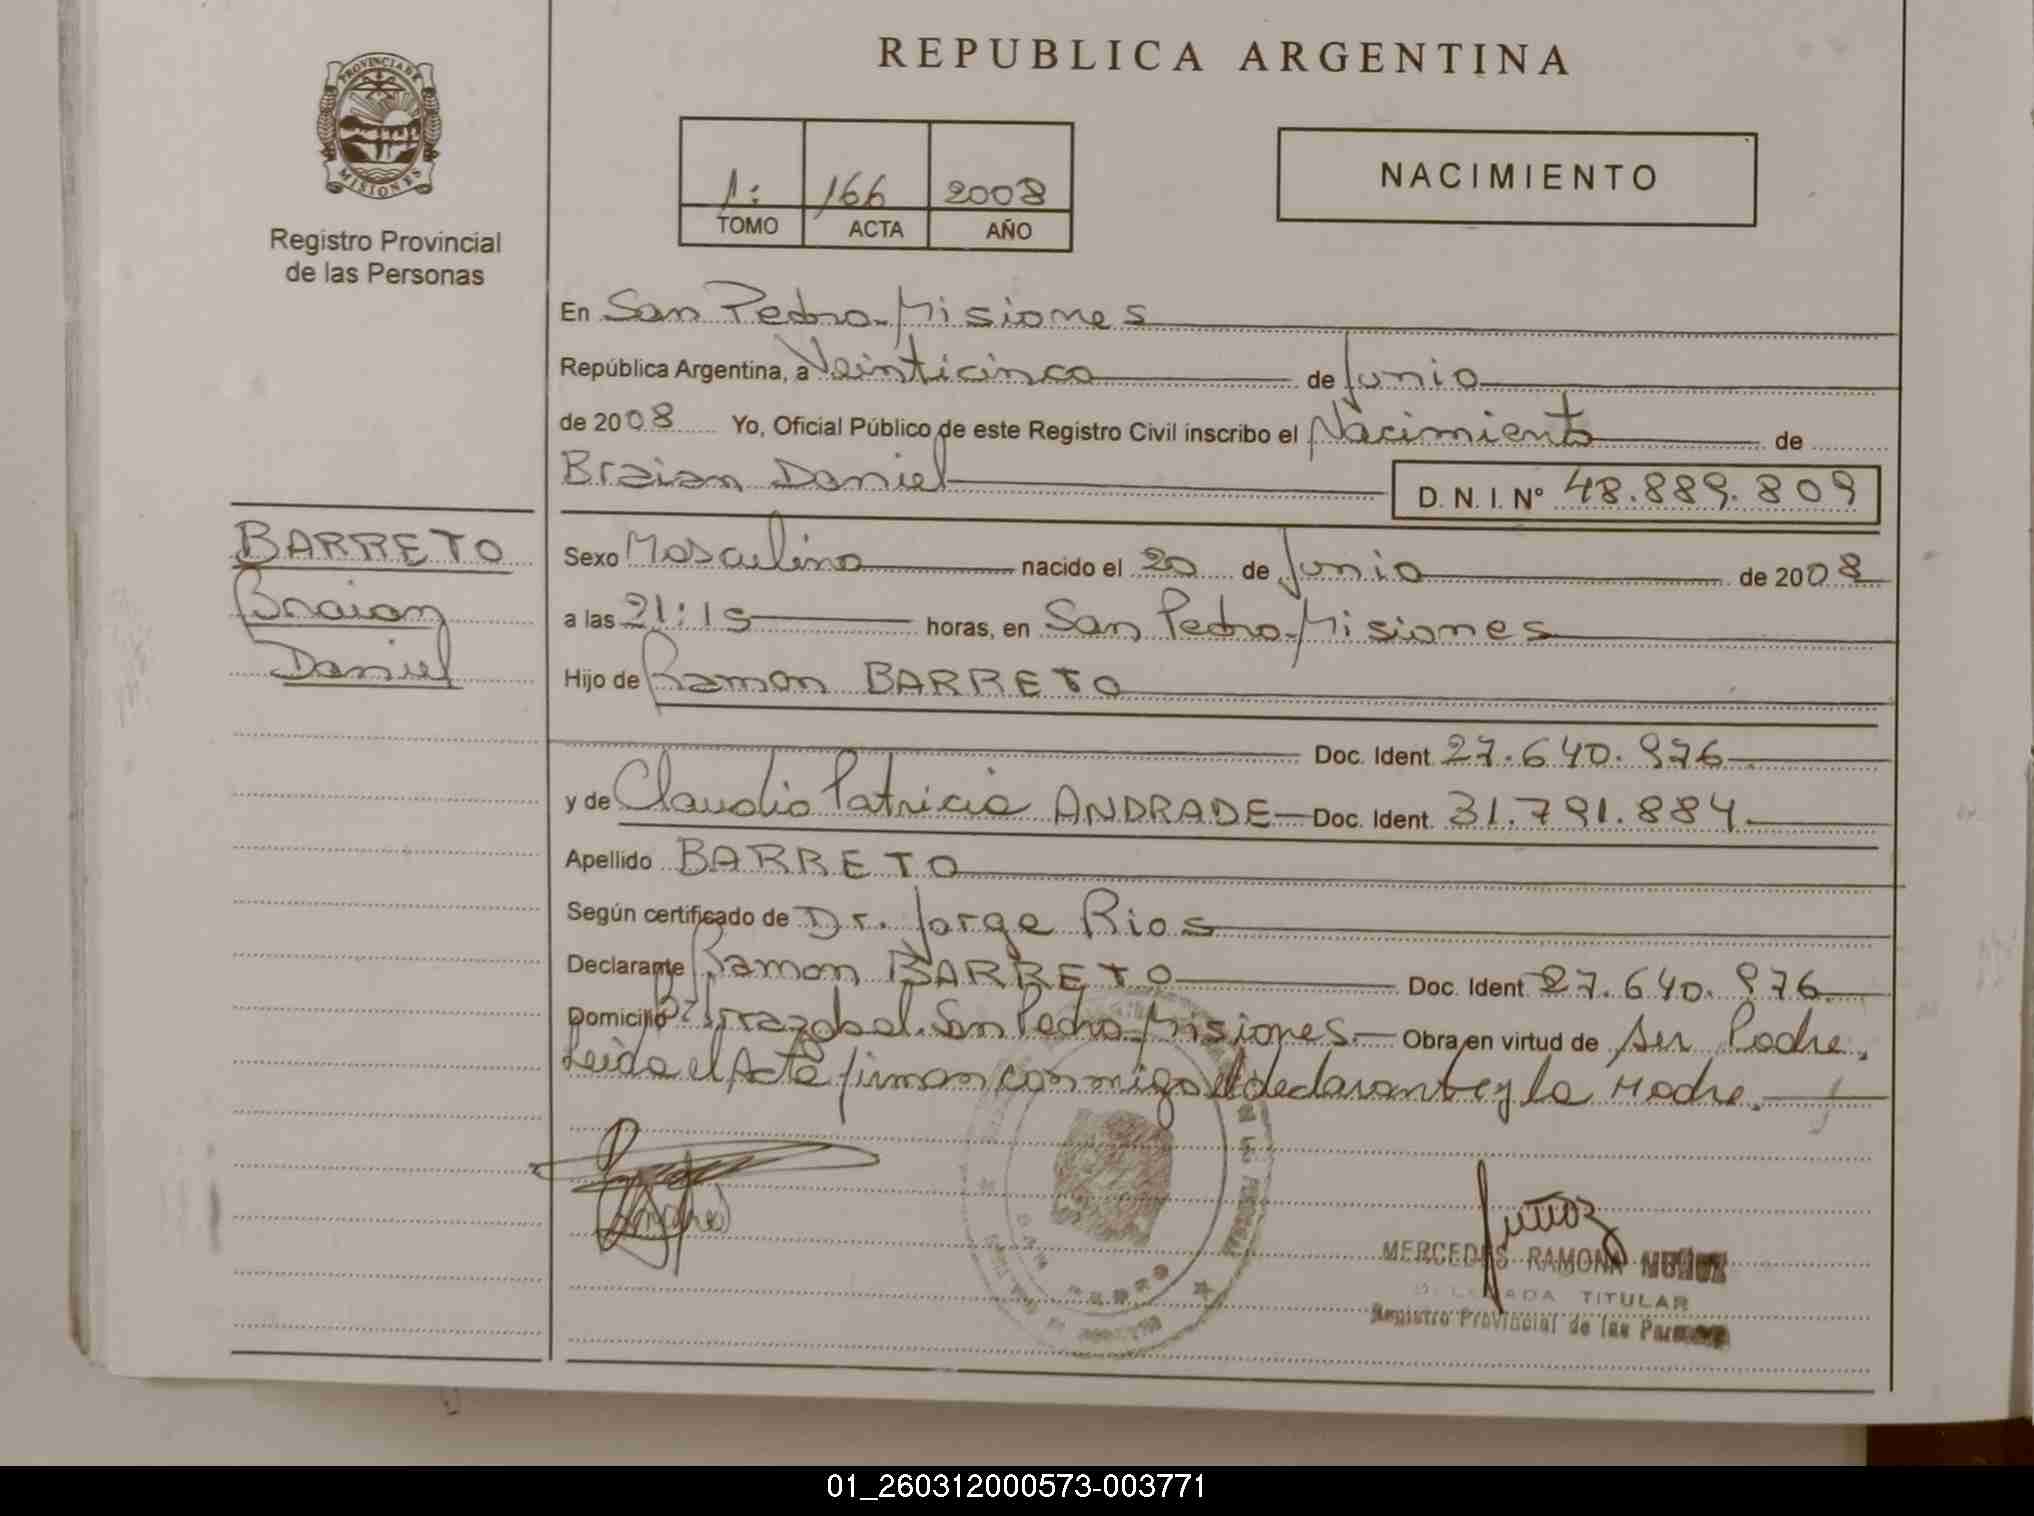 REPUBLICA ARGENTINA
PROVINCIA DE
MISIONES
Registro Provincial
de las Personas
1: 166 2008
TOMO ACTA AÑO
NACIMIENTO
En San Pedro-Misiones
República Argentina, a Veinticinco de Junio
de 2008 Yo, Oficial Público de este Registro Civil inscribo el Nacimiento de
Braian Daniel D. N. I. Nº 48.889.809
BARRETO
Braian
Daniel
Sexo Masculino nacido el 20 de Junio de 2008
a las 21:15 horas, en San Pedro-Misiones
Hijo de Ramon BARRETO
Doc. Ident. 27.640.976
y de Claudia Patricia ANDRADE Doc. Ident. 31.791.884
Apellido BARRETO
Según certificado de Dr. Jorge Rios
Declarante Ramon BARRETO Doc. Ident. 27.640.976
Domicilio Irrazabal. San Pedro-Misiones Obra en virtud de ser Padre.
Leida el Acta firman conmigo el declarante y la Madre.
Muñoz
MERCEDES RAMONA MUÑOZ
DELEGADA TITULAR
Registro Provincial de las Personas
01_260312000573-003771